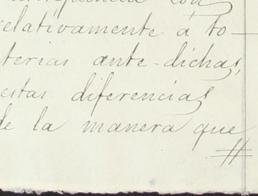 con
relativamente á to-
terias ante-dichas,
estas diferencias
de la manera que